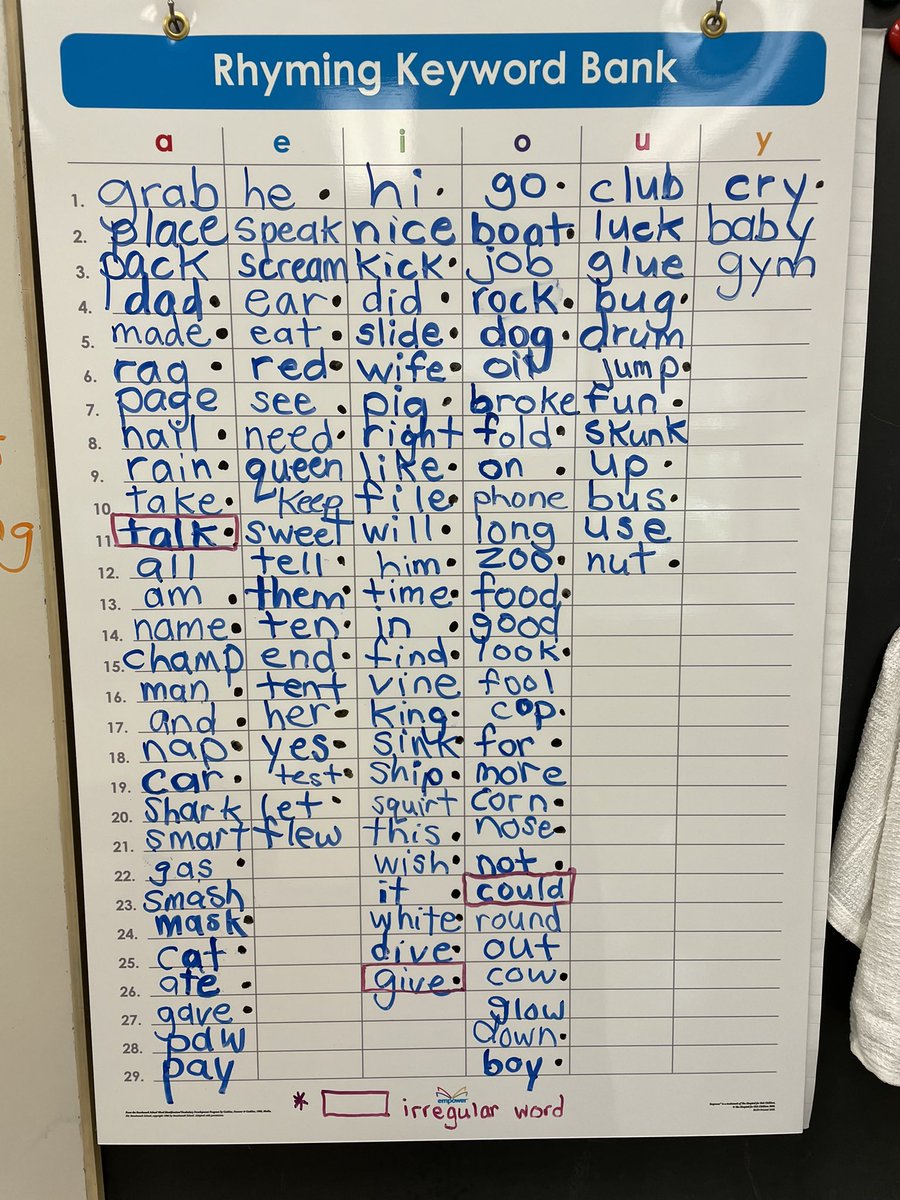 Rhyming Keyword Bank
a e i o u y
1. grab he • hi • go • club cry •
2. place speak nice boat • luck baby
3. pack scream kick • job glue gym
4. dad • ear • did • rock • bug •
5. made • eat • slide • dog • drum
6. rag • red • wife • oil jump •
7. page see • pig • broke fun •
8. hail • need • right fold • skunk
9. rain • queen like • on • up •
10. take • keep file • phone bus •
11. talk • sweet will • long use
12. all tell • him • zoo • nut •
13. am • them • time • food •
14. name • ten • in • good
15. champ end • find • look •
16. man • tent vine fool
17. and • her • king • cop •
18. nap • yes • sink • for •
19. car • test • ship • more
20. shark let • squirt corn •
21. smart flew this • nose •
22. gas • wish • not •
23. smash it • could
24. mask • white • round
25. cat • dive • out
26. ate • give • cow •
27. gave • glow
28. paw down •
29. pay boy •
* irregular word
empower